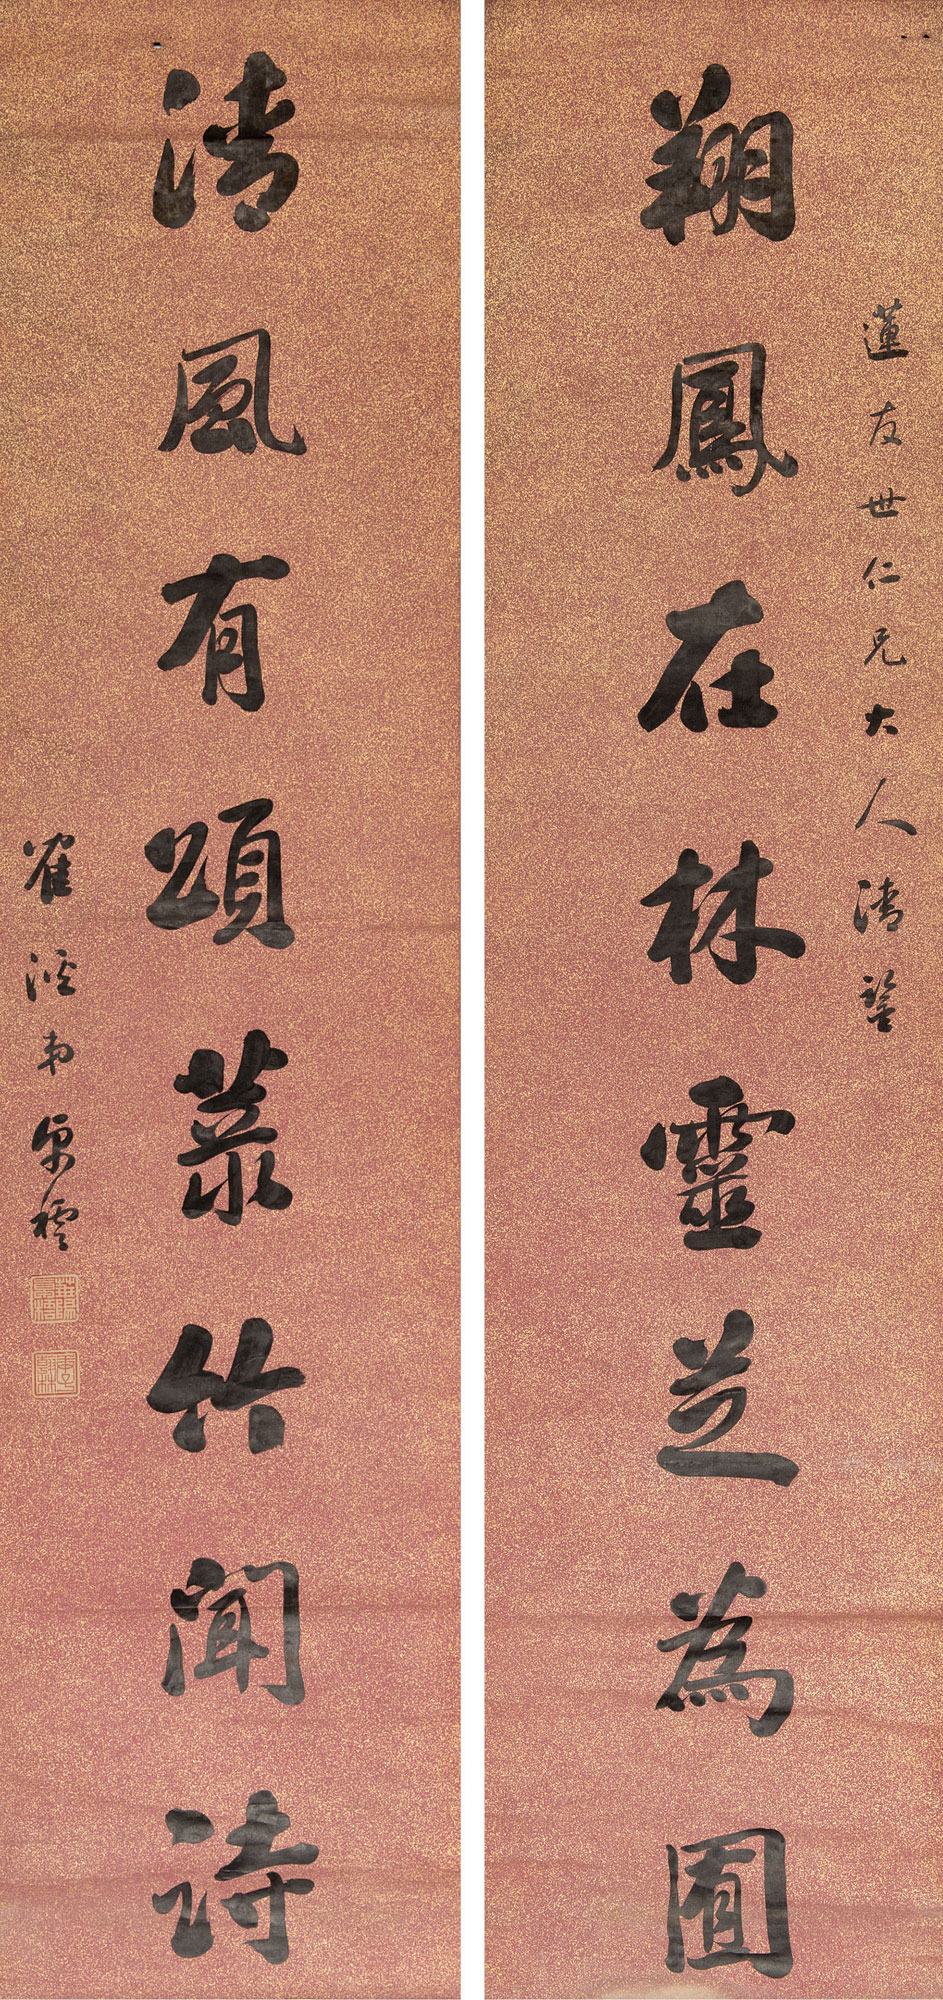 蓮友世仁兄大人清鑒
翔鳳在林靈芝為圃
清風有頌菉竹聞詩
隺溪弟